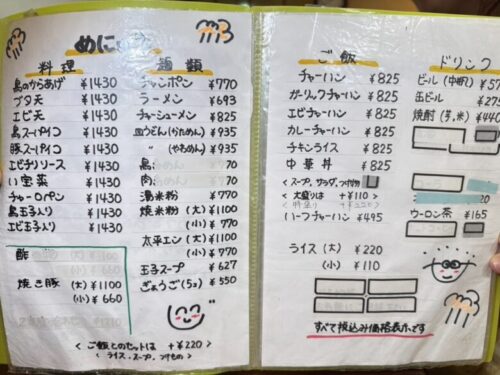 めにゅう
料理
鳥のからあげ ¥1430
ブタ天 ¥1430
エビ天 ¥1430
鳥スーパイコ ¥1430
豚スーパイコ ¥1430
エビチリソース ¥1430
い宝菜 ¥1430
チャーロペン ¥1430
鳥玉子入り ¥1430
エビ玉子入り ¥1430
酢 (大) ¥1100
焼き豚 (大) ¥1100
(小) ¥660
麺類
チャンポン ¥770
ラーメン ¥693
チャーシューメン ¥825
皿うどん(かためん) ¥935
〃 (やわめん) ¥935
鳥 めん 70
肉 70
湯米粉 ¥770
焼米粉 (大) ¥1100
(小) ¥770
太平エン (大) ¥1100
(小) ¥770
玉子スープ ¥627
ぎょうざ(5コ) ¥550
< ご飯とのセットは +¥220 >
( ライス・スープ・つけもの )
ご飯
チャーハン ¥825
ガーリックチャーハン ¥825
エビチャーハン ¥825
カレーチャーハン ¥825
チキンライス ¥825
中華丼 ¥825
< スープ、サラダ、つけもの
< 大盛りは +¥110 >
ハーフチャーハン ¥495
ライス (大) ¥220
(小) ¥110
ドリンク
ビール (中瓶)
缶ビール
焼酎(芋,米) ¥440
ウーロン茶 ¥165
すべて税込み価格表示です